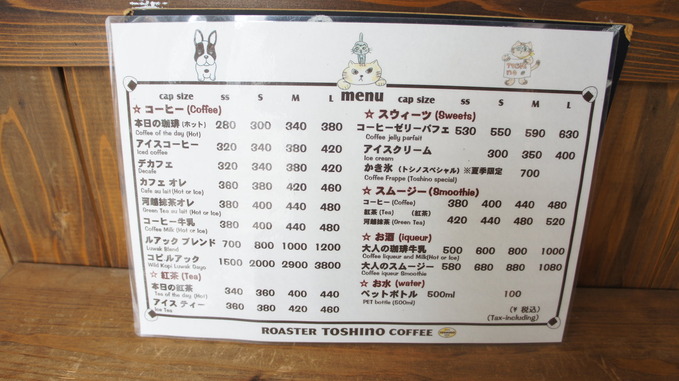 menu
cap size SS S M L
☆ コーヒー (Coffee)
本日の珈琲 (ホット) 280 300 340 380
Coffee of the day (Hot)
アイスコーヒー 320 340 380 420
Iced coffee
デカフェ 320 340 380 420
Decafe
カフェ オレ 360 380 420 460
Cafe au lait (Hot or Ice)
河越紅茶オレ 380 400 440 480
Green Tea au lait (Hot or Ice)
コーヒー牛乳 380 400 440 480
Coffee Milk (Hot or Ice)
ルアック ブレンド 700 800 1000 1200
Luwak Blend
コピルアック 1500 2000 2900 3800
Wild Kopi Luwak Gayo
☆ 紅茶 (Tea)
本日の紅茶 340 360 400 440
Tea of the day (Hot)
アイス ティー 360 380 420 460
Ice Tea
cap size SS S M L
☆ スウィーツ (Sweets)
コーヒーゼリーパフェ 530 550 590 630
Coffee jelly parfait
アイスクリーム 300 350 400
Ice cream
かき氷 (トシノスペシャル) ※夏季限定 700
Coffee Frappe (Toshino special)
☆ スムージー (Smoothie)
コーヒー (Coffee) 380 400 440 480
紅茶 (Tea) (紅茶)
河越抹茶 (Green Tea) 420 440 480 520
☆ お酒 (iqueur)
大人の珈琲牛乳 500 600 800 1000
Coffee liqueur and Milk(Hot or Ice)
大人のスムージー 580 680 880 1080
Coffee iqueur Smoothie
☆ お水 (water)
ペットボトル 500ml 100
PET bottle (500ml)
(￥ 税込)
(Tax-including)
ROASTER TOSHINO COFFEE